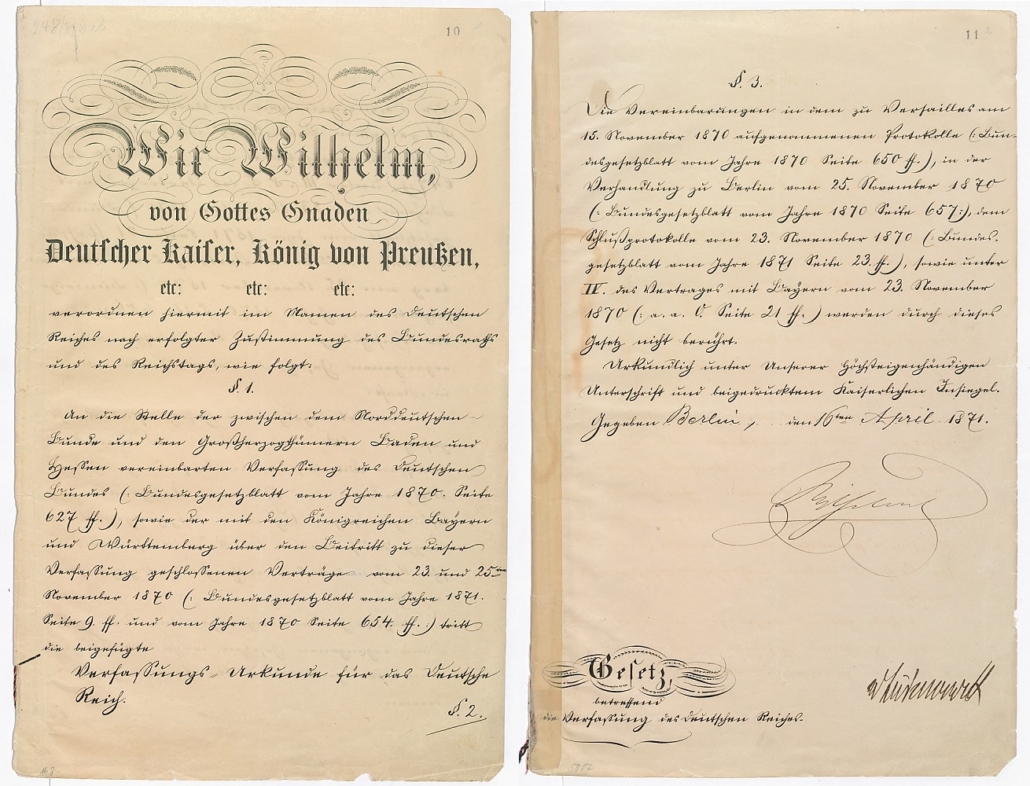 10
Wir Wilhelm,
von Gottes Gnaden
Deutscher Kaiser, König von Preußen,
etc: etc: etc:
verordnen hiermit im Namen des Deutschen
Reiches nach erfolgter Zustimmung des Bundesraths
und des Reichstags, wie folgt:
§ 1.
An die Stelle der zwischen dem Norddeutschen
Bunde und den Großherzogthümern Baden und
Hessen vereinbarten Verfassung des Deutschen
Bundes (: Bundesgesetzblatt vom Jahre 1870. Seite
627 ff.), sowie der mit den Königreichen Bayern
und Württemberg über den Beitritt zu dieser
Verfassung geschlossenen Verträge vom 23. und 25ten
November 1870 (: Bundesgesetzblatt vom Jahre 1871.
Seite 9. ff. und vom Jahre 1870 Seite 654 ff.:) tritt
die beigefügte
Verfassungs-Urkunde für das Deutsche
Reich.
§. 2.
11
§. 3.
Die Vereinbarungen in dem zu Versailles am
15. November 1870 aufgenommenen Protokolle (: Bun-
desgesetzblatt vom Jahre 1870 Seite 650 ff.), in der
Verhandlung zu Berlin vom 25. November 1870
(: Bundesgesetzblatt vom Jahre 1870 Seite 657:), dem
Schlußprotokolle vom 23. November 1870 (: Bundes-
gesetzblatt vom Jahre 1871 Seite 23. ff.), sowie unter
IV. des Vertrages mit Bayern vom 23. November
1870 (: a. a. O. Seite 21 ff.) werden durch dieses
Gesetz nicht berührt.
Urkundlich unter Unserer Höchsteigenhändigen
Unterschrift und beigedrucktem Kaiserlichen Insiegel.
Gegeben Berlin, den 16ten April 1871.
Wilhelm
Gesetz,
betreffend
die Verfassung des Deutschen Reiches.
v Bismarck